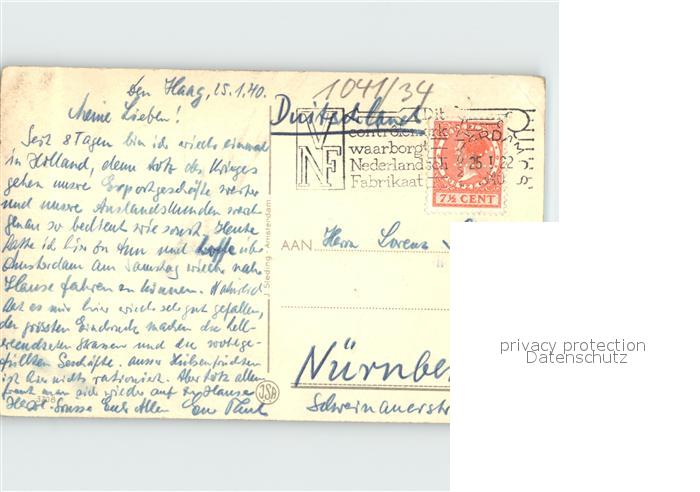 Den Haag, 25.1.40.
1041/34
Meine Lieben!
Duitschland
Seit 8 Tagen bin ich wieder einmal
in Holland, denn trotz des Krieges
gehen unsre Exportgeschäfte weiter
und unsre Auslandskunden werden
genau so bedient wie sonst. Heute
hatte ich hier zu tun und hoffe über
Amsterdam am Samstag wieder nach
Hause fahren zu können. Natürlich
hat es mir hier wieder sehr gut gefallen,
den grössten Eindruck machen die hell-
erleuchteten Strassen und die
gefüllten Geschäfte. Ausser Hülsenfrüchten
ist hier nichts rationiert. Aber trotz allem
freut man sich wieder auf zu Hause
Herzl. Grüsse Euch Allen Euer
3808
J. Sleding - Amsterdam
JSA
VNF
Dit
contrôlemerk
waarborgt
Nederlandsch
Fabrikaat
25.1.22
1940
7½ CENT
AAN
Herrn Lorenz
Nürnbe
Schweinauerstr
privacy protection
Datenschutz